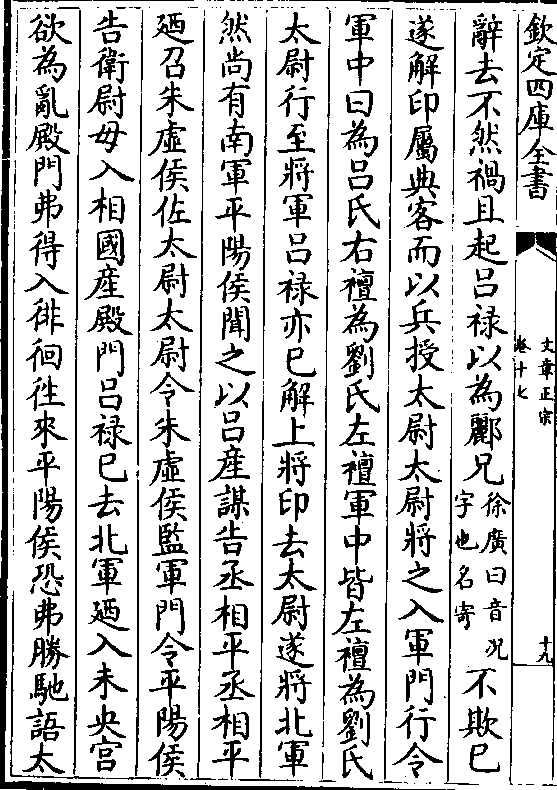 欽定四庫全書
文章正宗
卷十七
十九
辭去不然禍且起呂禄以為酈兄徐廣曰音况字也名寄不欺已
遂解印屬典客而以兵授太尉太尉將之入軍門行令
軍中曰為呂氏右襢為劉氏左襢軍中皆左襢為劉氏
太尉行至將軍呂禄亦已解上將印去太尉遂將北軍
然尚有南軍平陽侯聞之以呂産謀告丞相平丞相平
廼召朱虚侯佐太尉太尉令朱虚侯監軍門令平陽侯
告衛尉毋入相國産殿門呂禄已去北軍廼入未央宫
欲為亂殿門弗得入徘徊徃來平陽侯恐弗勝馳語太